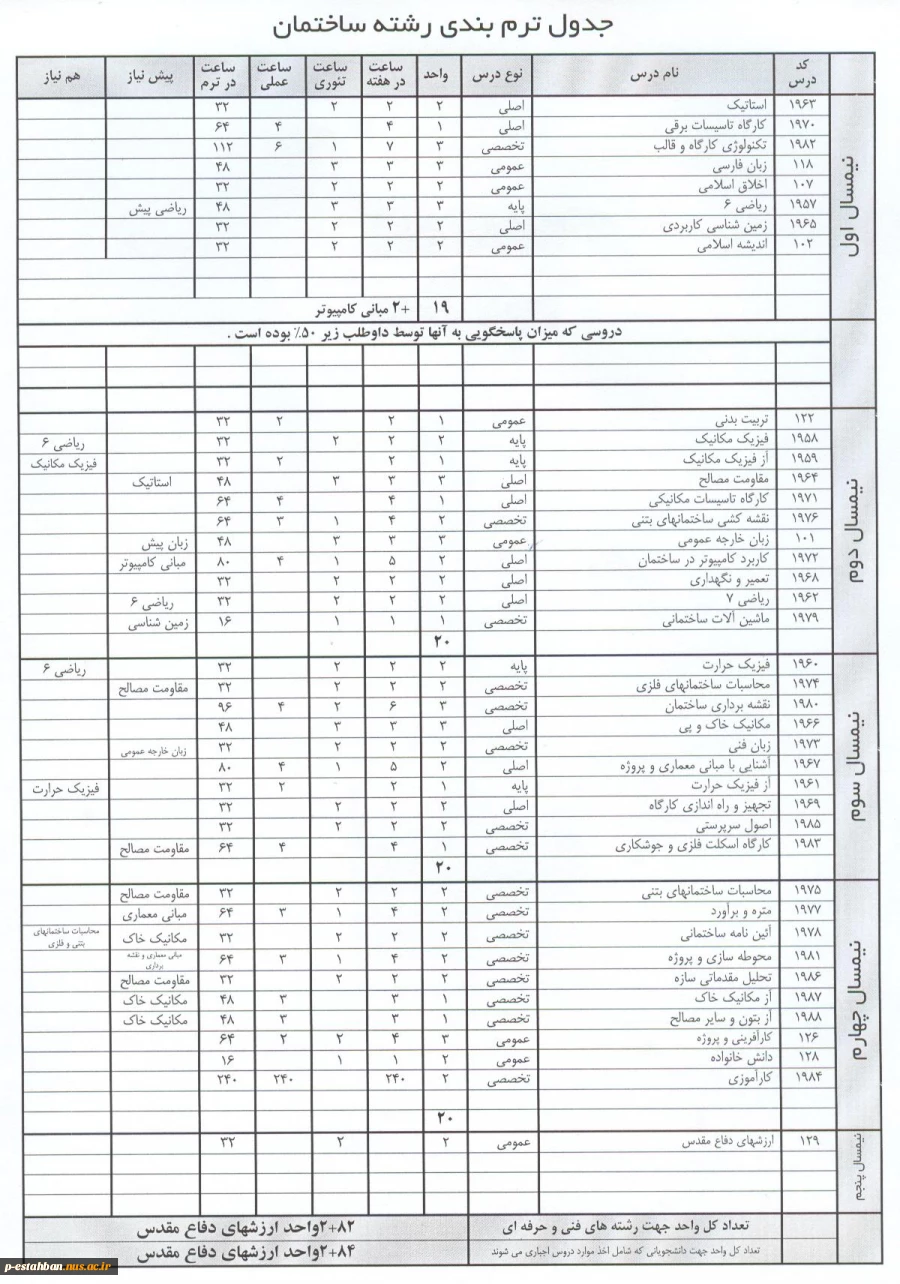 جدول ترم بندی رشته ساختمان
کد درس نام درس نوع درس واحد ساعت در هفته ساعت تئوری ساعت عملی ساعت در ترم پیش نیاز هم نیاز
نیمسال اول
۱۹۶۳ استاتیک اصلی ۲ ۲ ۲ ۳۲
۱۹۷۰ کارگاه تاسیسات برقی اصلی ۱ ۴ ۴ ۶۴
۱۹۸۲ تکنولوژی کارگاه و قالب تخصصی ۳ ۷ ۱ ۶ ۱۱۲
۱۱۸ زبان فارسی عمومی ۳ ۳ ۳ ۴۸
۱۰۷ اخلاق اسلامی عمومی ۲ ۲ ۲ ۳۲
۱۹۵۷ ریاضی ۶ پایه ۳ ۳ ۳ ۴۸ ریاضی پیش
۱۹۶۵ زمین شناسی کاربردی اصلی ۲ ۲ ۲ ۳۲
۱۰۲ اندیشه اسلامی عمومی ۲ ۲ ۲ ۳۲
۱۹ +۲ مبانی کامپیوتر
دروسی که میزان پاسخگویی به آنها توسط داوطلب زیر ۵۰٪ بوده است .
نیمسال دوم
۱۲۲ تربیت بدنی عمومی ۱ ۲ ۲ ۳۲
۱۹۵۸ فیزیک مکانیک پایه ۲ ۲ ۲ ۳۲ ریاضی ۶
۱۹۵۹ آز فیزیک مکانیک پایه ۱ ۲ ۲ ۳۲ فیزیک مکانیک
۱۹۶۴ مقاومت مصالح اصلی ۳ ۳ ۳ ۴۸ استاتیک
۱۹۷۱ کارگاه تاسیسات مکانیکی اصلی ۱ ۴ ۴ ۶۴
۱۹۷۶ نقشه کشی ساختمانهای بتنی تخصصی ۲ ۴ ۱ ۳ ۶۴
۱۰۱ زبان خارجه عمومی عمومی ۳ ۳ ۳ ۴۸ زبان پیش
۱۹۷۲ کاربرد کامپیوتر در ساختمان اصلی ۲ ۵ ۱ ۴ ۸۰ مبانی کامپیوتر
۱۹۶۸ تعمیر و نگهداری اصلی ۲ ۲ ۲ ۳۲
۱۹۶۲ ریاضی ۷ اصلی ۲ ۲ ۲ ۳۲ ریاضی ۶
۱۹۷۹ ماشین آلات ساختمانی تخصصی ۱ ۱ ۱ ۱۶ زمین شناسی
۲۰
نیمسال سوم
۱۹۶۰ فیزیک حرارت پایه ۲ ۲ ۲ ۳۲ ریاضی ۶
۱۹۷۴ محاسبات ساختمانهای فلزی تخصصی ۲ ۲ ۲ ۳۲ مقاومت مصالح
۱۹۸۰ نقشه برداری ساختمان تخصصی ۳ ۶ ۲ ۴ ۹۶
۱۹۶۶ مکانیک خاک و پی اصلی ۳ ۳ ۳ ۴۸
۱۹۷۳ زبان فنی تخصصی ۲ ۲ ۲ ۳۲ زبان خارجه عمومی
۱۹۶۷ آشنایی با مبانی معماری و پروژه اصلی ۲ ۵ ۱ ۴ ۸۰
۱۹۶۱ آز فیزیک حرارت پایه ۱ ۲ ۲ ۳۲ فیزیک حرارت
۱۹۶۹ تجهیز و راه اندازی کارگاه اصلی ۲ ۲ ۲ ۳۲
۱۹۸۵ اصول سرپرستی تخصصی ۲ ۲ ۲ ۳۲
۱۹۸۳ کارگاه اسکلت فلزی و جوشکاری تخصصی ۱ ۴ ۴ ۶۴ مقاومت مصالح
۲۰
نیمسال چهارم
۱۹۷۵ محاسبات ساختمانهای بتنی تخصصی ۲ ۲ ۲ ۳۲ مقاومت مصالح
۱۹۷۷ متره و برآورد تخصصی ۲ ۴ ۱ ۳ ۶۴ مبانی معماری
۱۹۷۸ آئین نامه ساختمانی تخصصی ۲ ۲ ۲ ۳۲ مکانیک خاک محاسبات ساختمانهای بتنی و فلزی
۱۹۸۱ محوطه سازی و پروژه تخصصی ۲ ۴ ۱ ۳ ۶۴ مبانی معماری و نقشه برداری
۱۹۸۶ تحلیل مقدماتی سازه تخصصی ۲ ۲ ۲ ۳۲ مقاومت مصالح
۱۹۸۷ آز مکانیک خاک تخصصی ۱ ۳ ۳ ۴۸ مکانیک خاک
۱۹۸۸ آز بتون و سایر مصالح تخصصی ۱ ۳ ۳ ۴۸ مکانیک خاک
۱۲۶ کارآفرینی و پروژه عمومی ۳ ۴ ۲ ۲ ۶۴
۱۲۸ دانش خانواده عمومی ۲ ۱ ۱ ۱۶
۱۹۸۴ کارآموزی تخصصی ۲ ۲۴۰ ۲۴۰ ۲۴۰
۲۰
نیمسال پنجم
۱۲۹ ارزشهای دفاع مقدس عمومی ۲ ۲ ۳۲
تعداد کل واحد جهت رشته های فنی و حرفه ای ۲+۸۲واحد ارزشهای دفاع مقدس
تعداد کل واحد جهت دانشجویانی که شامل اخذ موارد دروس اجباری می شوند ۲+۸۴واحد ارزشهای دفاع مقدس
p-estahban.nus.ac.ir